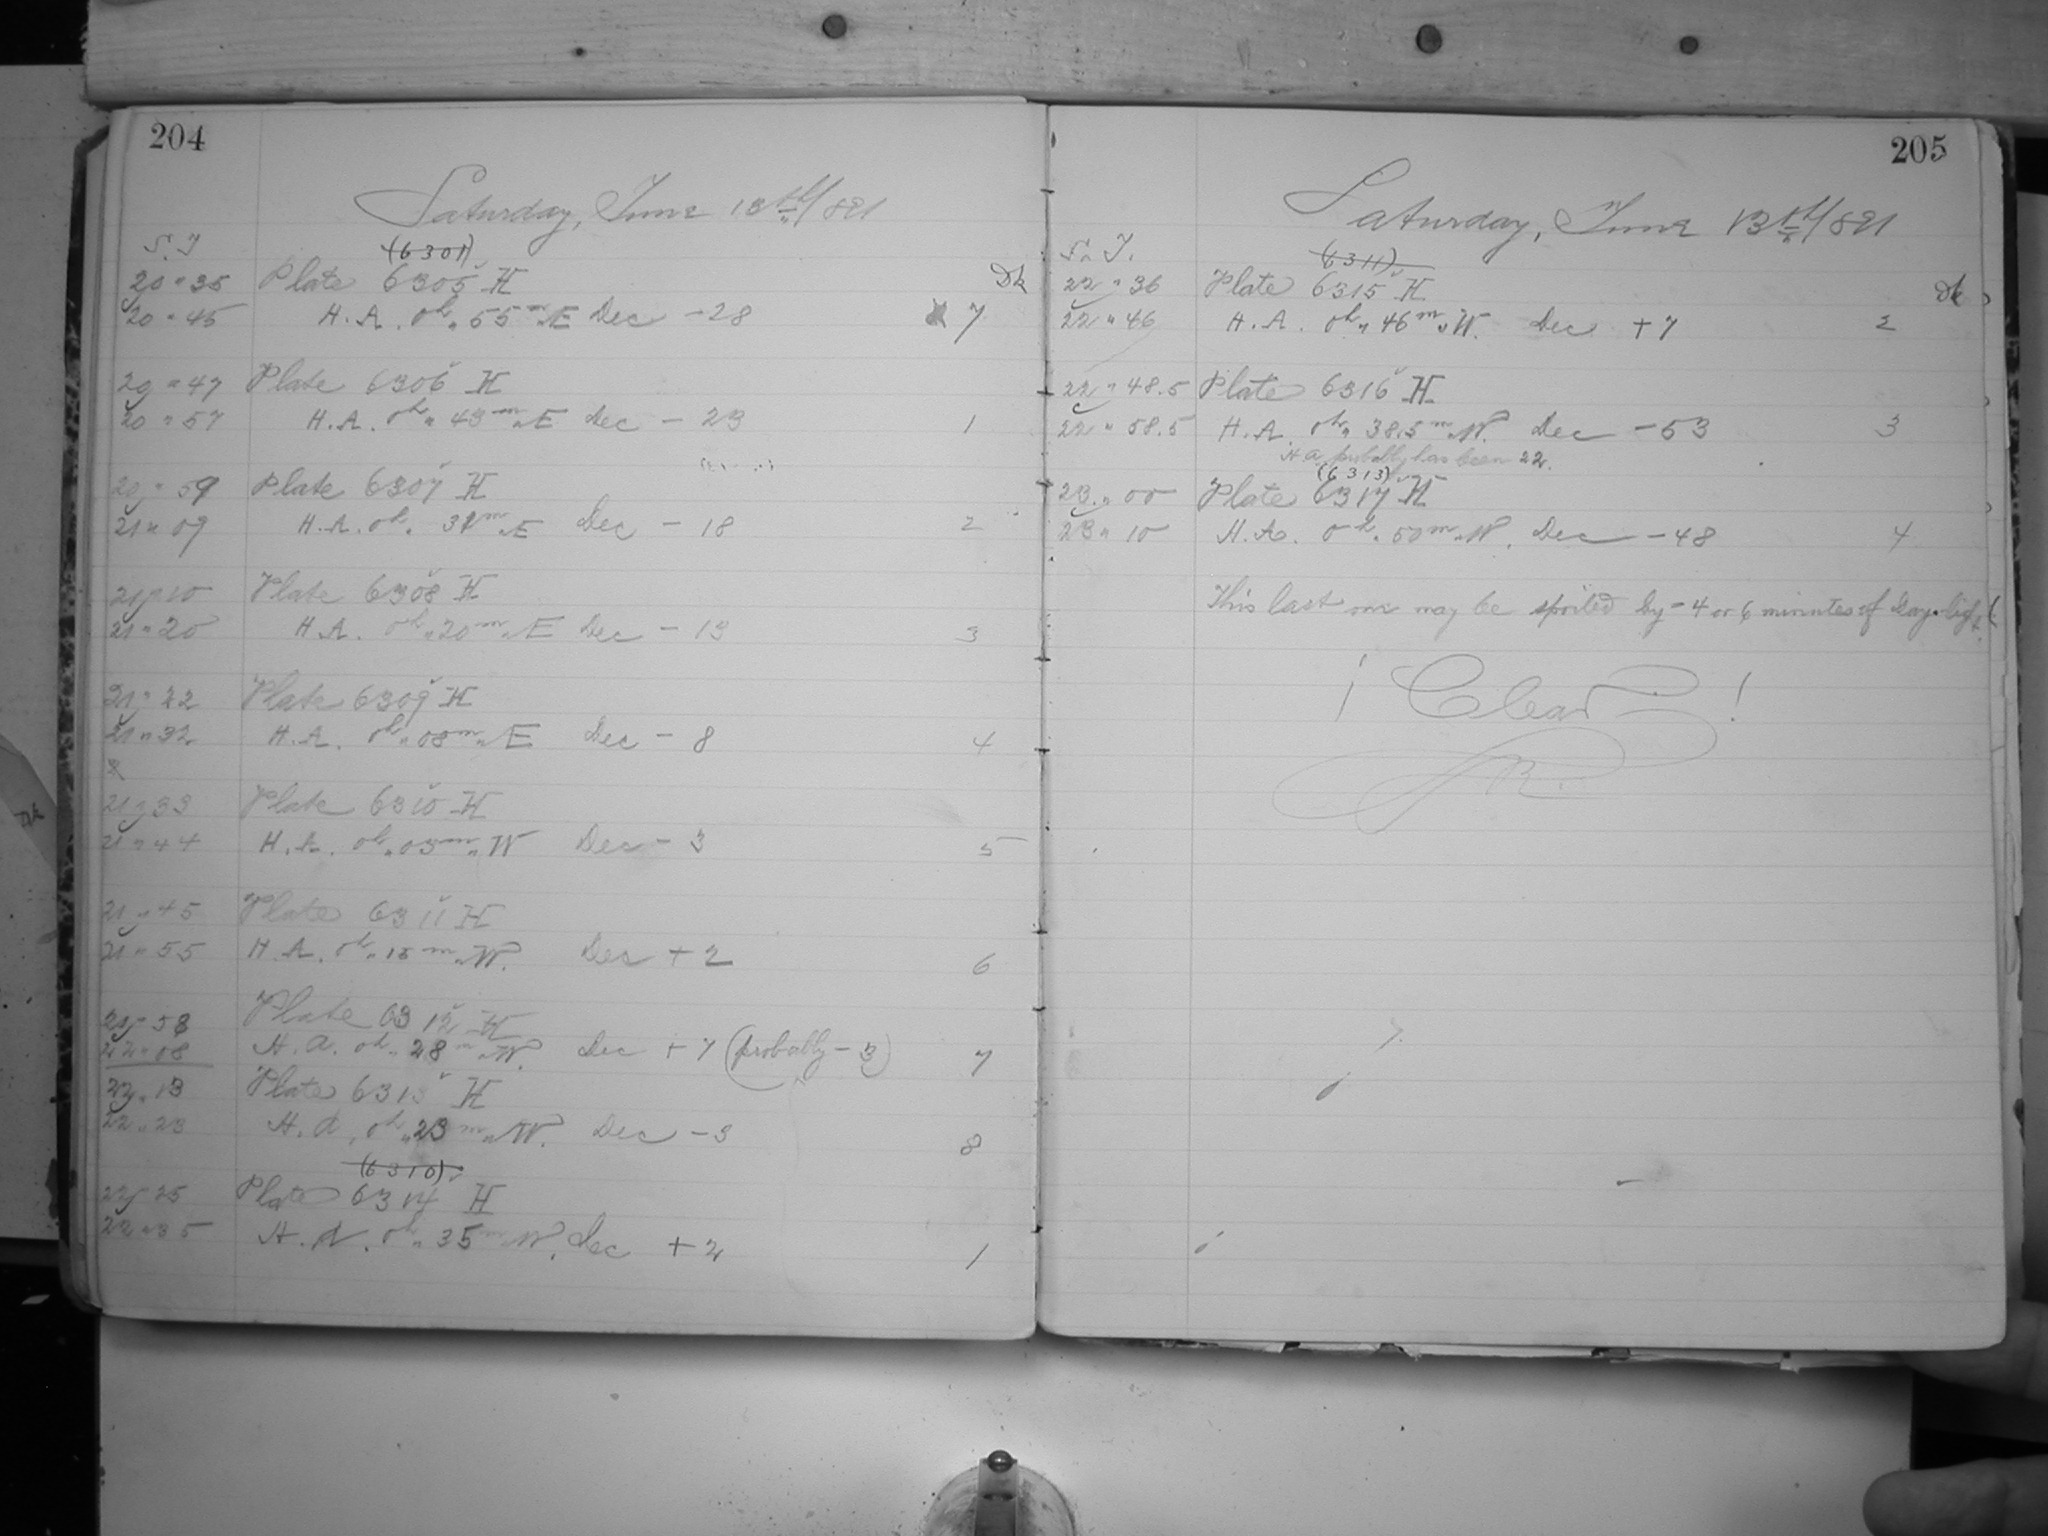 204
Saturday, June 13th/891
S.T
(6301)
20 " 35 Plate 6305 H Dk
20 " 45 H.A. 0h " 55m " E Dec - 28 7
20 " 47 Plate 6306 H
20 " 57 H.A. 0h " 43m " E Dec - 23 1
20 " 59 Plate 6307 H
21 " 09 H.A. 0h " 31m " E Dec - 18 2
21 " 10 Plate 6308 H
21 " 20 H.A. 0h " 20m " E Dec - 13 3
21 " 22 Plate 6309 H
21 " 32 H.A. 0h " 08m " E Dec - 8 4
21 " 33 Plate 6310 H
21 " 44 H.A. 0h " 03m " W Dec - 3 5
21 " 45 Plate 6311 H
21 " 55 H.A. 0h " 15m " W. Dec + 2 6
21 " 58 Plate 6312 H
22 " 08 H.A. 0h " 28m " W. Dec + 7 (probably - 3) 7
22 " 13 Plate 6313 H
22 " 23 H.A. 0h " 23m " W. Dec - 3 8
(6310)
22 " 25 Plate 6314 H
22 " 35 H.A. 0h " 35m " W. Dec + 2 1
205
Saturday, June 13th/891
S.T.
(6311)
22 " 36 Plate 6315 H Dk
22 " 46 H.A. 0h " 46m " W. Dec + 7 2
22 " 48.5 Plate 6316 H
22 " 58.5 H.A. 0h " 38.5m " W. Dec - 53 3
H a. probably has been 22.
(6313)
23 " 00 Plate 6317 H
23 " 10 H.A. 0h " 50m " W. Dec - 48 4
This last one may be spoiled by - 4 or 6 minutes of day-light.
¡ Clear !
R.